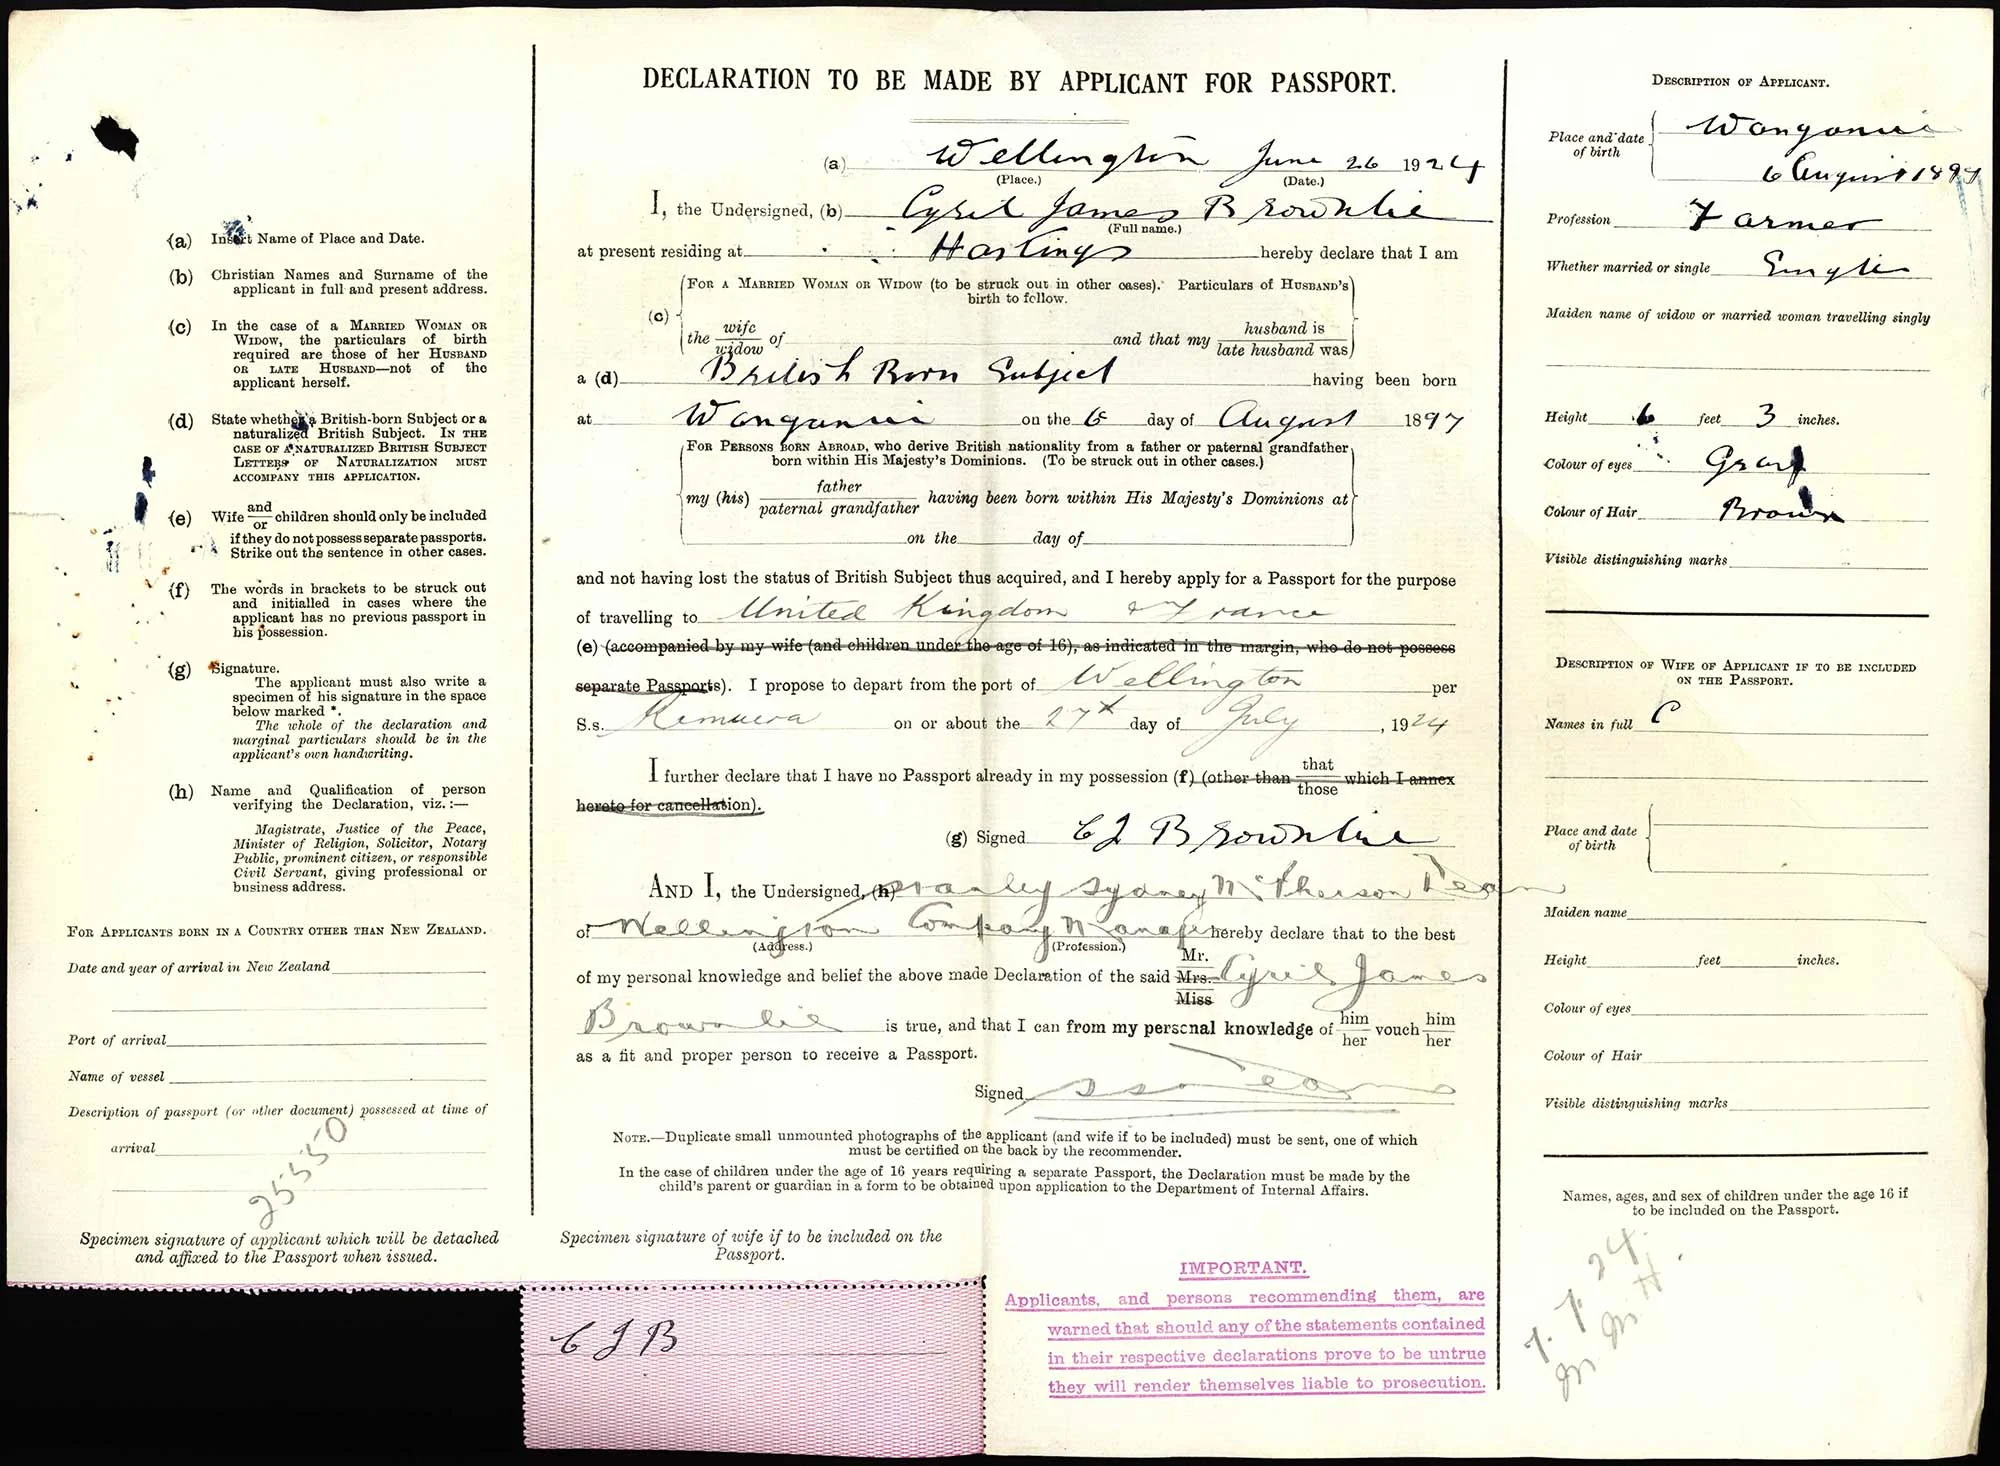 (a) Insert Name of Place and Date.
(b) Christian Names and Surname of the
applicant in full and present address.
(c) In the case of a Married Woman or
Widow, the particulars of birth
required are those of her Husband
or late Husband—not of the
applicant herself.
(d) State whether a British-born Subject or a
naturalized British Subject. In the
case of a naturalized British Subject
Letters of Naturalization must
accompany this application.
(e) Wife and/or children should only be included
if they do not possess separate passports.
Strike out the sentence in other cases.
(f) The words in brackets to be struck out
and initialled in cases where the
applicant has no previous passport in
his possession.
(g) Signature.
The applicant must also write a
specimen of his signature in the space
below marked *.
The whole of the declaration and
marginal particulars should be in the
applicant's own handwriting.
(h) Name and Qualification of person
verifying the Declaration, viz.:—
Magistrate, Justice of the Peace,
Minister of Religion, Solicitor, Notary
Public, prominent citizen, or responsible
Civil Servant, giving professional or
business address.
For Applicants born in a Country other than New Zealand.
Date and year of arrival in New Zealand
Port of arrival
Name of vessel
Description of passport (or other document) possessed at time of
arrival
25550
Specimen signature of applicant which will be detached
and affixed to the Passport when issued.
DECLARATION TO BE MADE BY APPLICANT FOR PASSPORT.
(a) Wellington June 26 1924
(Place.) (Date.)
I, the Undersigned, (b) Cyril James Brownlie
(Full name.)
at present residing at Hastings hereby declare that I am
For a Married Woman or Widow (to be struck out in other cases). Particulars of Husband's
birth to follow.
(c) the wife/widow of and that my husband is/late husband was
a (d) British Born Subject having been born
at Wanganui on the 6 day of August 1897
For Persons born Abroad, who derive British nationality from a father or paternal grandfather
born within His Majesty's Dominions. (To be struck out in other cases.)
my (his) father/paternal grandfather having been born within His Majesty's Dominions at
on the day of
and not having lost the status of British Subject thus acquired, and I hereby apply for a Passport for the purpose
of travelling to United Kingdom & France
(e) (accompanied by my wife (and children under the age of 16), as indicated in the margin, who do not possess
separate Passports). I propose to depart from the port of Wellington per
S.s. Remuera on or about the 27th day of July, 1924
I further declare that I have no Passport already in my possession (f) (other than that/those which I annex
hereto for cancellation).
(g) Signed C J Brownlie
And I, the Undersigned, (h) Stanley Sydney McPherson Dean
of Wellington Company Manager hereby declare that to the best
(Address.) (Profession.)
of my personal knowledge and belief the above made Declaration of the said Mr. Mrs. Miss Cyril James
Brownlie is true, and that I can from my personal knowledge of him/her vouch him/her
as a fit and proper person to receive a Passport.
Signed S S M Dean
Note.—Duplicate small unmounted photographs of the applicant (and wife if to be included) must be sent, one of which
must be certified on the back by the recommender.
In the case of children under the age of 16 years requiring a separate Passport, the Declaration must be made by the
child's parent or guardian in a form to be obtained upon application to the Department of Internal Affairs.
Specimen signature of wife if to be included on the
Passport.
C J B
IMPORTANT.
Applicants, and persons recommending them, are
warned that should any of the statements contained
in their respective declarations prove to be untrue
they will render themselves liable to prosecution.
Description of Applicant.
Place and date of birth Wanganui
6 August 1897
Profession Farmer
Whether married or single Single
Maiden name of widow or married woman travelling singly
Height 6 feet 3 inches.
Colour of eyes Gray
Colour of Hair Brown
Visible distinguishing marks
Description of Wife of Applicant if to be included
on the Passport.
Names in full C
Place and date
of birth
Maiden name
Height feet inches.
Colour of eyes
Colour of Hair
Visible distinguishing marks
Names, ages, and sex of children under the age 16 if
to be included on the Passport.
7.24.